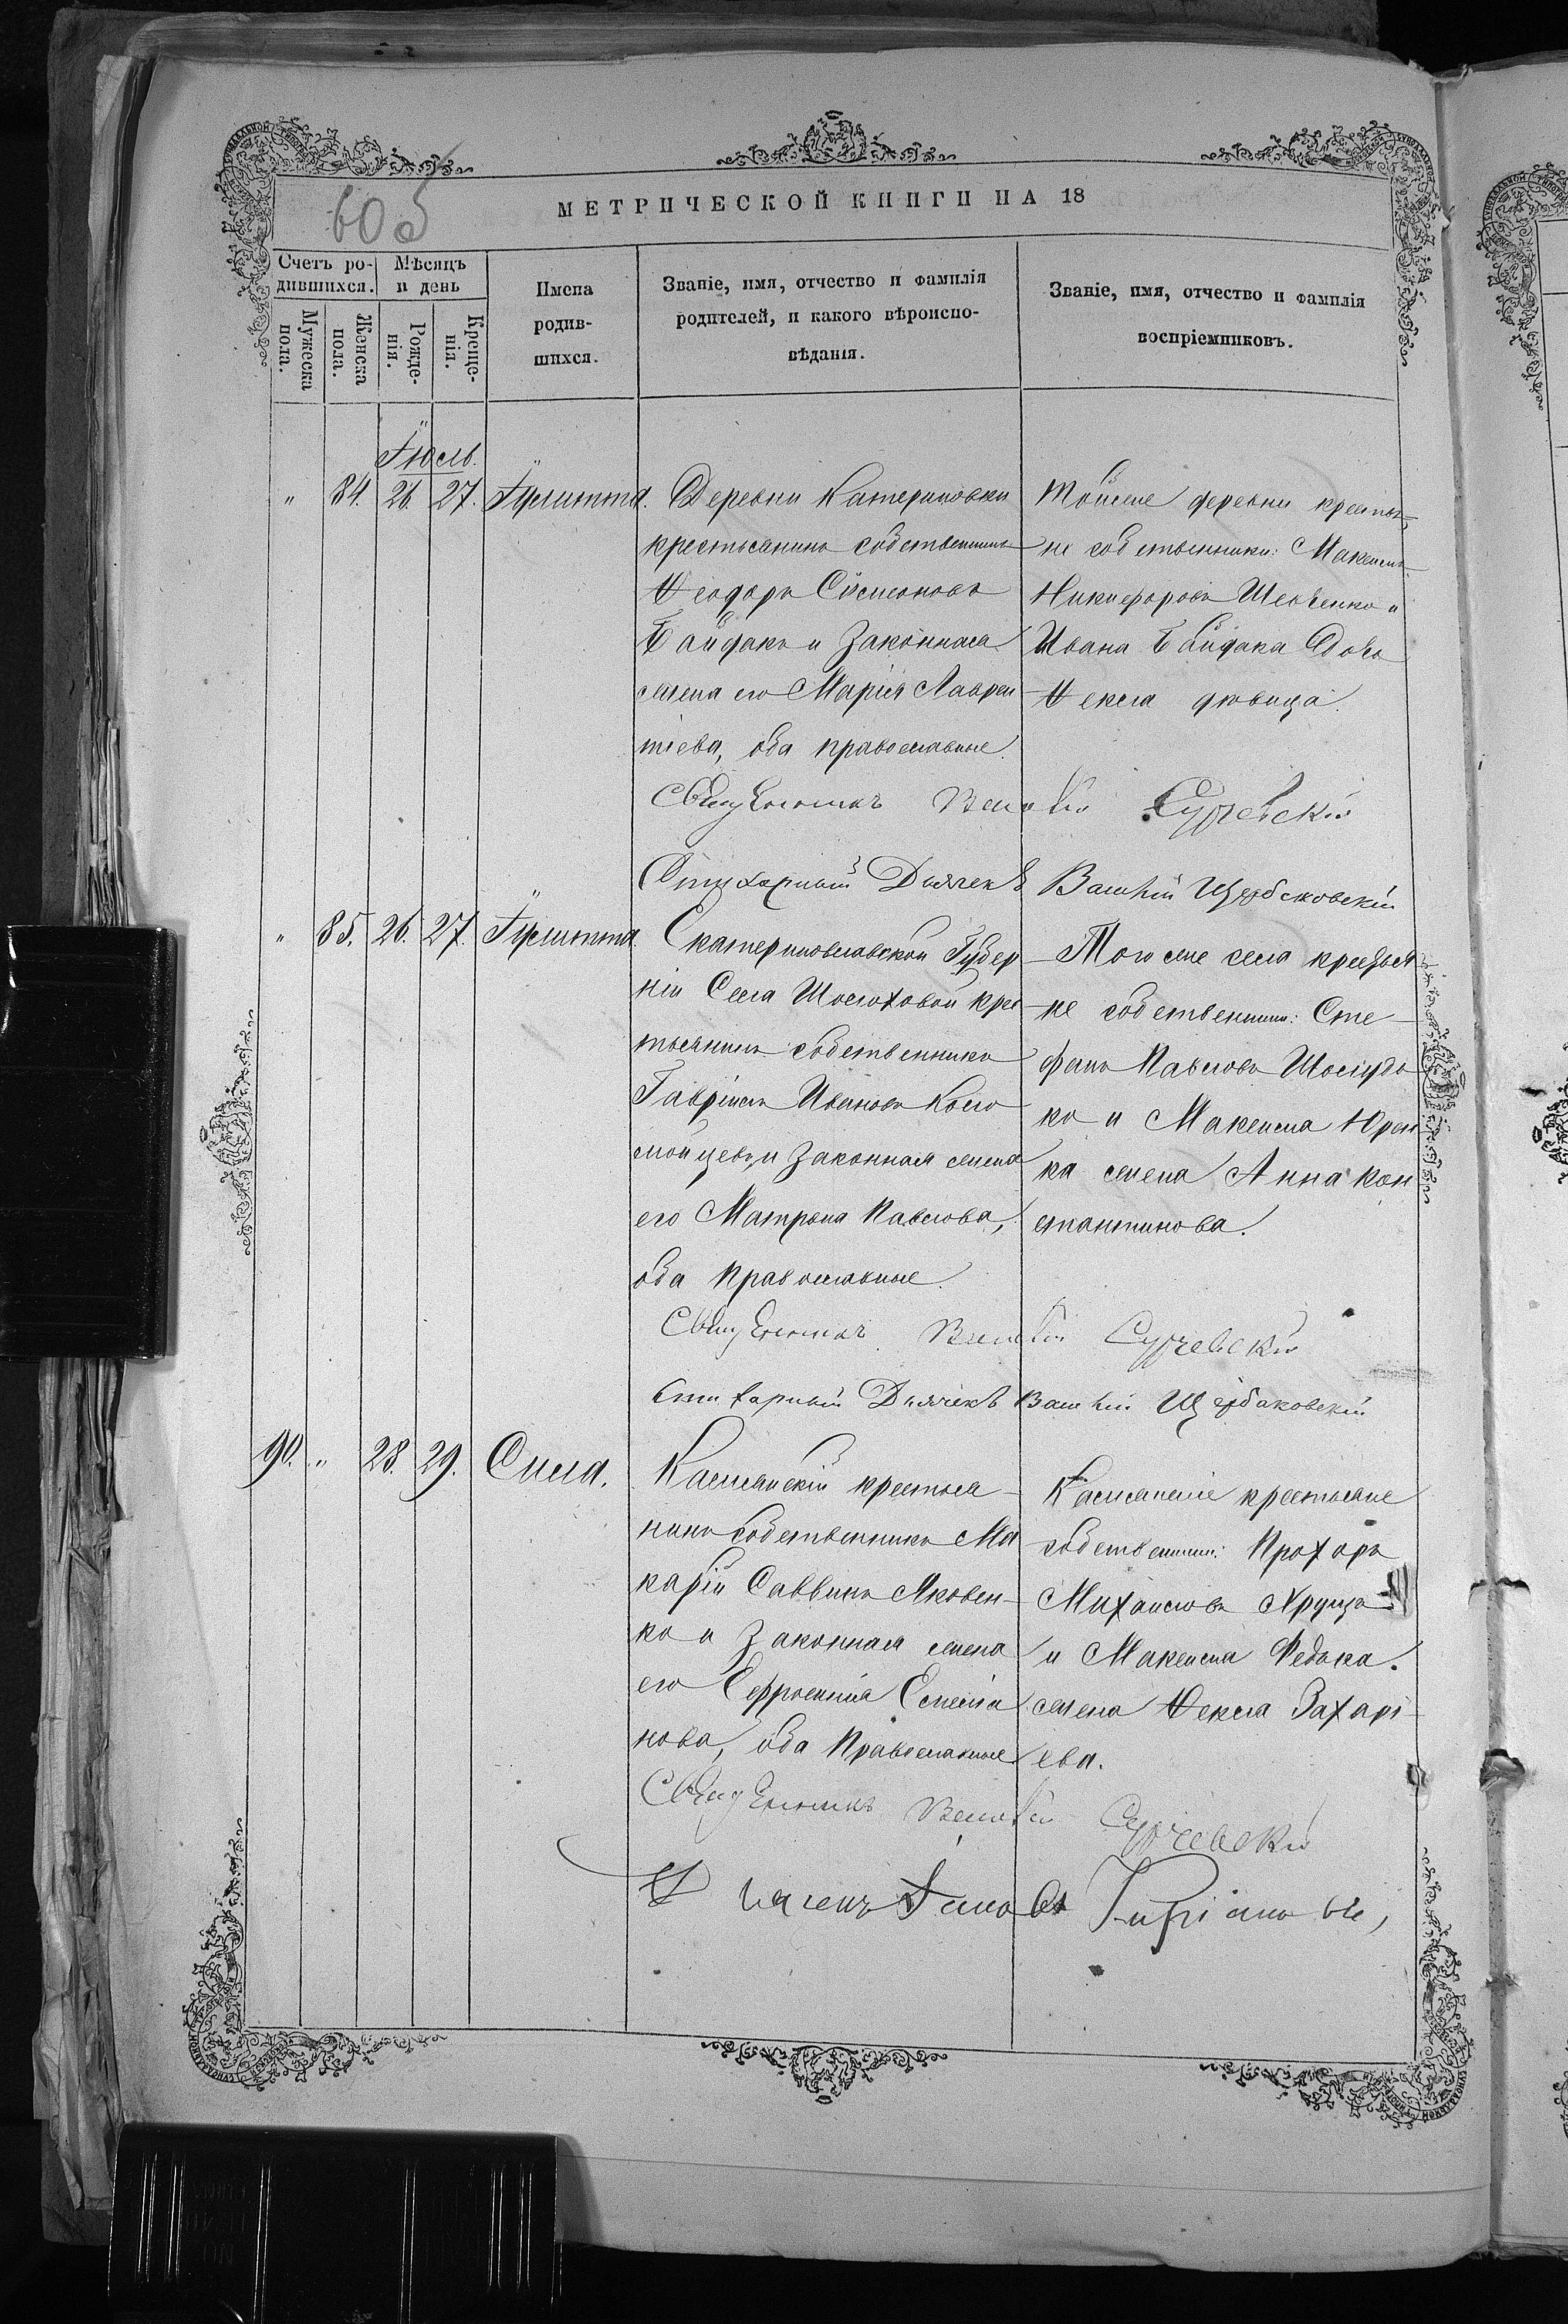 60 об
МЕТРИЧЕСКОЙ КНИГИ НА 18
Счетъ ро-
дившихся.
Мѣсяцъ
и день
Мужеска
пола.
Женска
пола.
Рожде-
нія.
Креще-
нія.
Имена
родив-
шихся.
Званіе, имя, отчество и фамилія
родителей, и какого вѣроиспо-
вѣданія.
Званіе, имя, отчество и фамилія
воспріемниковъ.
Іюль.
" 84. 26. 27. Іулитта.
Деревни Катериновки
крестьянинъ собственникъ
Ѳеодоръ Сѵмеоновъ
Байдакъ и законная
жена его Марія Лаврен
тіева, оба православные.
Тойже деревни крестья-
не собственники: Максимъ
Никифоровъ Шевченко и
Ивана Байдака дочь
Ѳекла дѣвица.
Священникъ Василій Сурчевскій
Стихарный Дьячекъ Василій Щербаковскій
" 85. 26. 27. Іулитта.
Екатеринославской Губер
ніи Села крес
тьянинъ собственникъ
Гавріилъ Ивановъ Коло
мойцевъ и законная жена
его Матрона Павлова,
оба православные.
Того же села крестья-
не собственники: Сте-
фанъ Павловъ
ко и Максима Юрен
ка жена Анна Кон
стантинова.
Священникъ Василій Сурчевскій
Стихарный Дьячекъ Василій Щербаковскій
90. " 28. 29. Сила.
крестья-
нинъ собственникъ Ма
карій Саввинъ Яковен-
ко и законная жена
его Евфросинія Емелія
нова, оба Православные
крестьяне
собственники: Прохоръ
Михайловъ Хруща
и Максима Федька
жена Ѳекла Захарі-
ева.
Священникъ Василій Сурчевскій